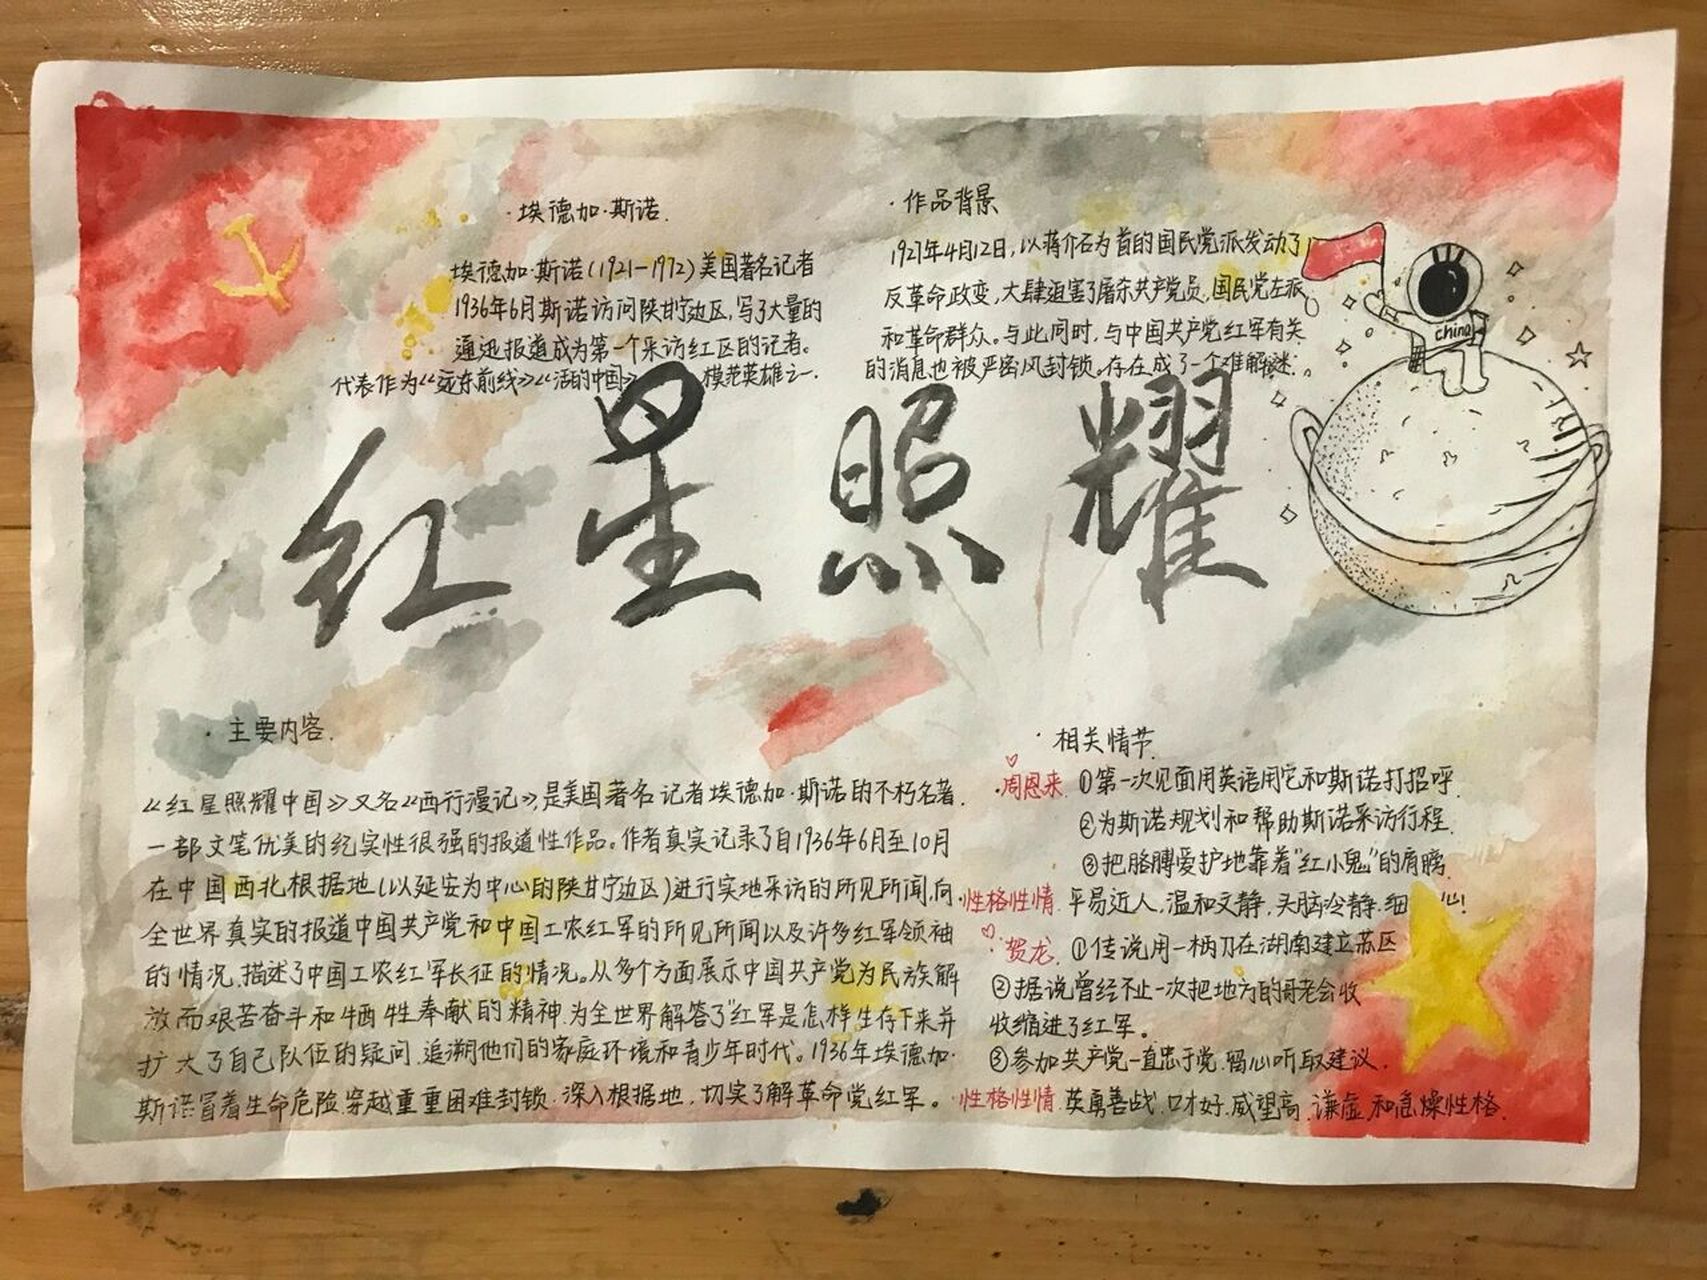 ·埃德加·斯诺.
埃德加·斯诺(1921-1972)美国著名记者
1936年6月斯诺访问陕甘宁边区,写了大量的
通迅报道成为第一个采访红区的记者。
代表作为《远东前线》《活的中国》 模范英雄之一.
·作品背景
1927年4月12日,以蒋介石为首的国民党派发动了
反革命政变,大肆迫害了屠杀共产党员,国民党左派
和革命群众。与此同时,与中国共产党红军有关
的消息也被严密风封锁。存在成了一个难解谜.
china
红星照耀
·主要内容.
《红星照耀中国》又名《西行漫记》,是美国著名记者埃德加·斯诺的不朽名著.
一部文笔优美的纪实性很强的报道性作品。作者真实记录了自1936年6月至10月
在中国西北根据地(以延安为中心的陕甘宁边区)进行实地采访的所见所闻,向
全世界真实的报道中国共产党和中国工农红军的所见所闻以及许多红军领袖
的情况.描述了中国工农红军长征的情况。从多个方面展示中国共产党为民族解
放而艰苦奋斗和牺牲奉献的精神.为全世界解答了"红军是怎样生存下来并
扩大了自己队伍的疑问.追溯他们的家庭环境和青少年时代。1936年埃德加·
斯诺冒着生命危险穿越重重困难封锁.深入根据地.切实了解革命党红军。
·相关情节.
·周恩来 ①第一次见面用英语用它和斯诺打招呼.
②为斯诺规划和帮助斯诺采访行程.
③把胳膊爱护地靠着"红小鬼"的肩膀.
·性格性情.平易近人.温和文静.头脑冷静.细心!
·贺龙. ①传说用一柄刀在湖南建立苏区
②据说曾经不止一次把地方的哥老会收
收缩进了红军。
③参加共产党一直忠于党.留心听取建议.
·性格性情.英勇善战.口才好.威望高.谦虚.和急燥性格.